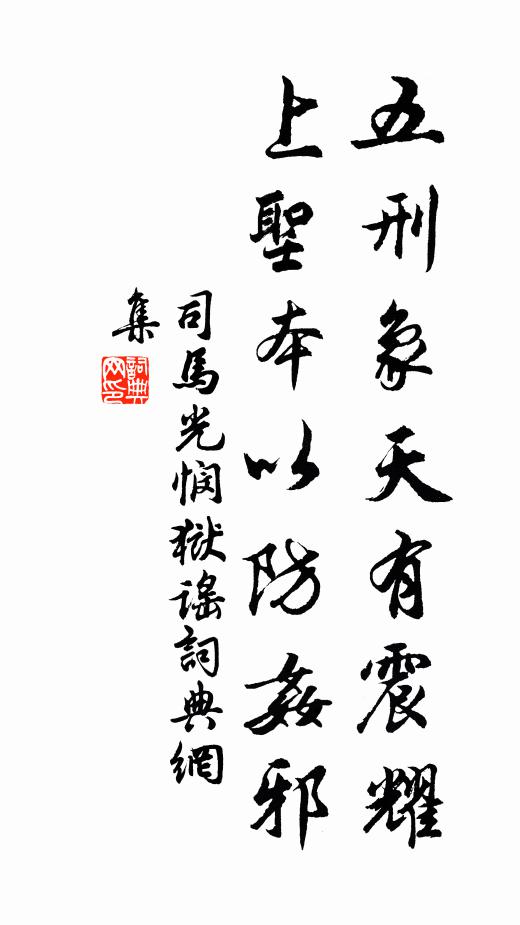 五刑象天有震耀
上聖本以防姦邪
司馬光憫獄謠詞典網
集
詞典
网印